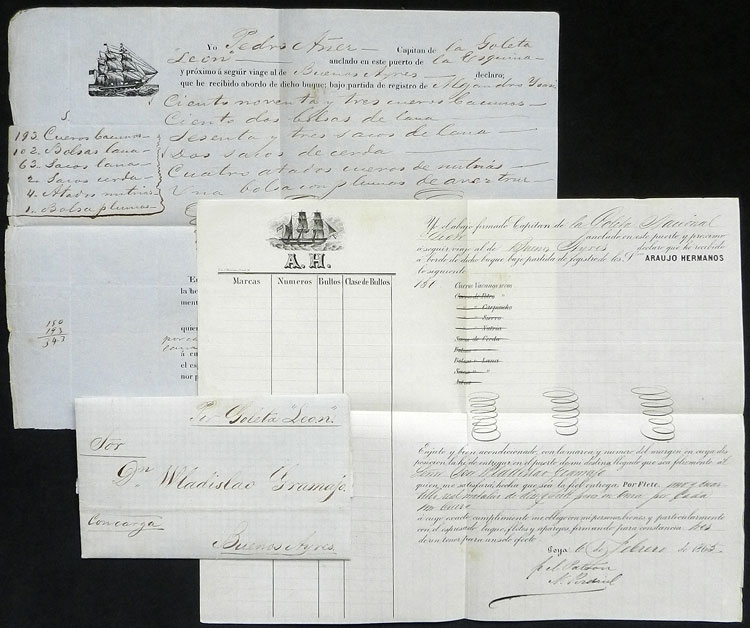 Yo Pedro Añer Capitan de la Goleta
"Leon" anclado en este puerto de la Esquina
y próximo á seguir viage al de Buenos Ayres declaro;
que he recibido abordo de dicho buque; bajo partida de registro de Alejandro
Ciento noventa y tres cueros bacunos
Ciento dos bolsas de lana
Sesenta y tres sacos de lana
Dos sacos de cerda
Cuatro atados cueros de nutrias
Una bolsa con plumas de avestruz
193. Cueros bacunos
102. Bolsas lana
63. Sacos lana
2. Sacos cerda
4. Atados nutrias
1. Bolsa plumas
En
la he
ment
150
193
343
quien
por ca
á en
el cap
nor p
A. H.
Marcas Numeros Bultos Clase de Bultos
Yo el abajo firmado Capitan de la Goleta Nacional
Leon anclado en este puerto y procsimo
a seguir viage al de Buenos Ayres declaro que he recibido
a bordo de dicho buque bajo partida de registro de los Sres ARAUJO HERMANOS
lo siguiente
150 Cueros Vacunos secos
Cueros de Potro
" " Carpincho
" " Nutria
Sacos de Cerda
" Lana
Enjuto y bien acondicionado, con la marca y numero del margen en cuya dis
posicion la he de entregar en el puerto de mi destino, llegado que sea felizmente al
Señor Don Wladislao Gramajo
quien me satisfará, hecha que sea la fiel entrega, Por Flete,
a cuyo exacto cumplimiento me obligo con mi persona, bienes y particularmente
con el espresado buque, fletes y aparejos, firmando para constancia tres
de un tenor para un solo efecto
Goya 6 de Febrero de 1865
Pr Goleta "Leon".
Sor
Dn Wladislao Gramajo
Concarga
Buenos Ayres